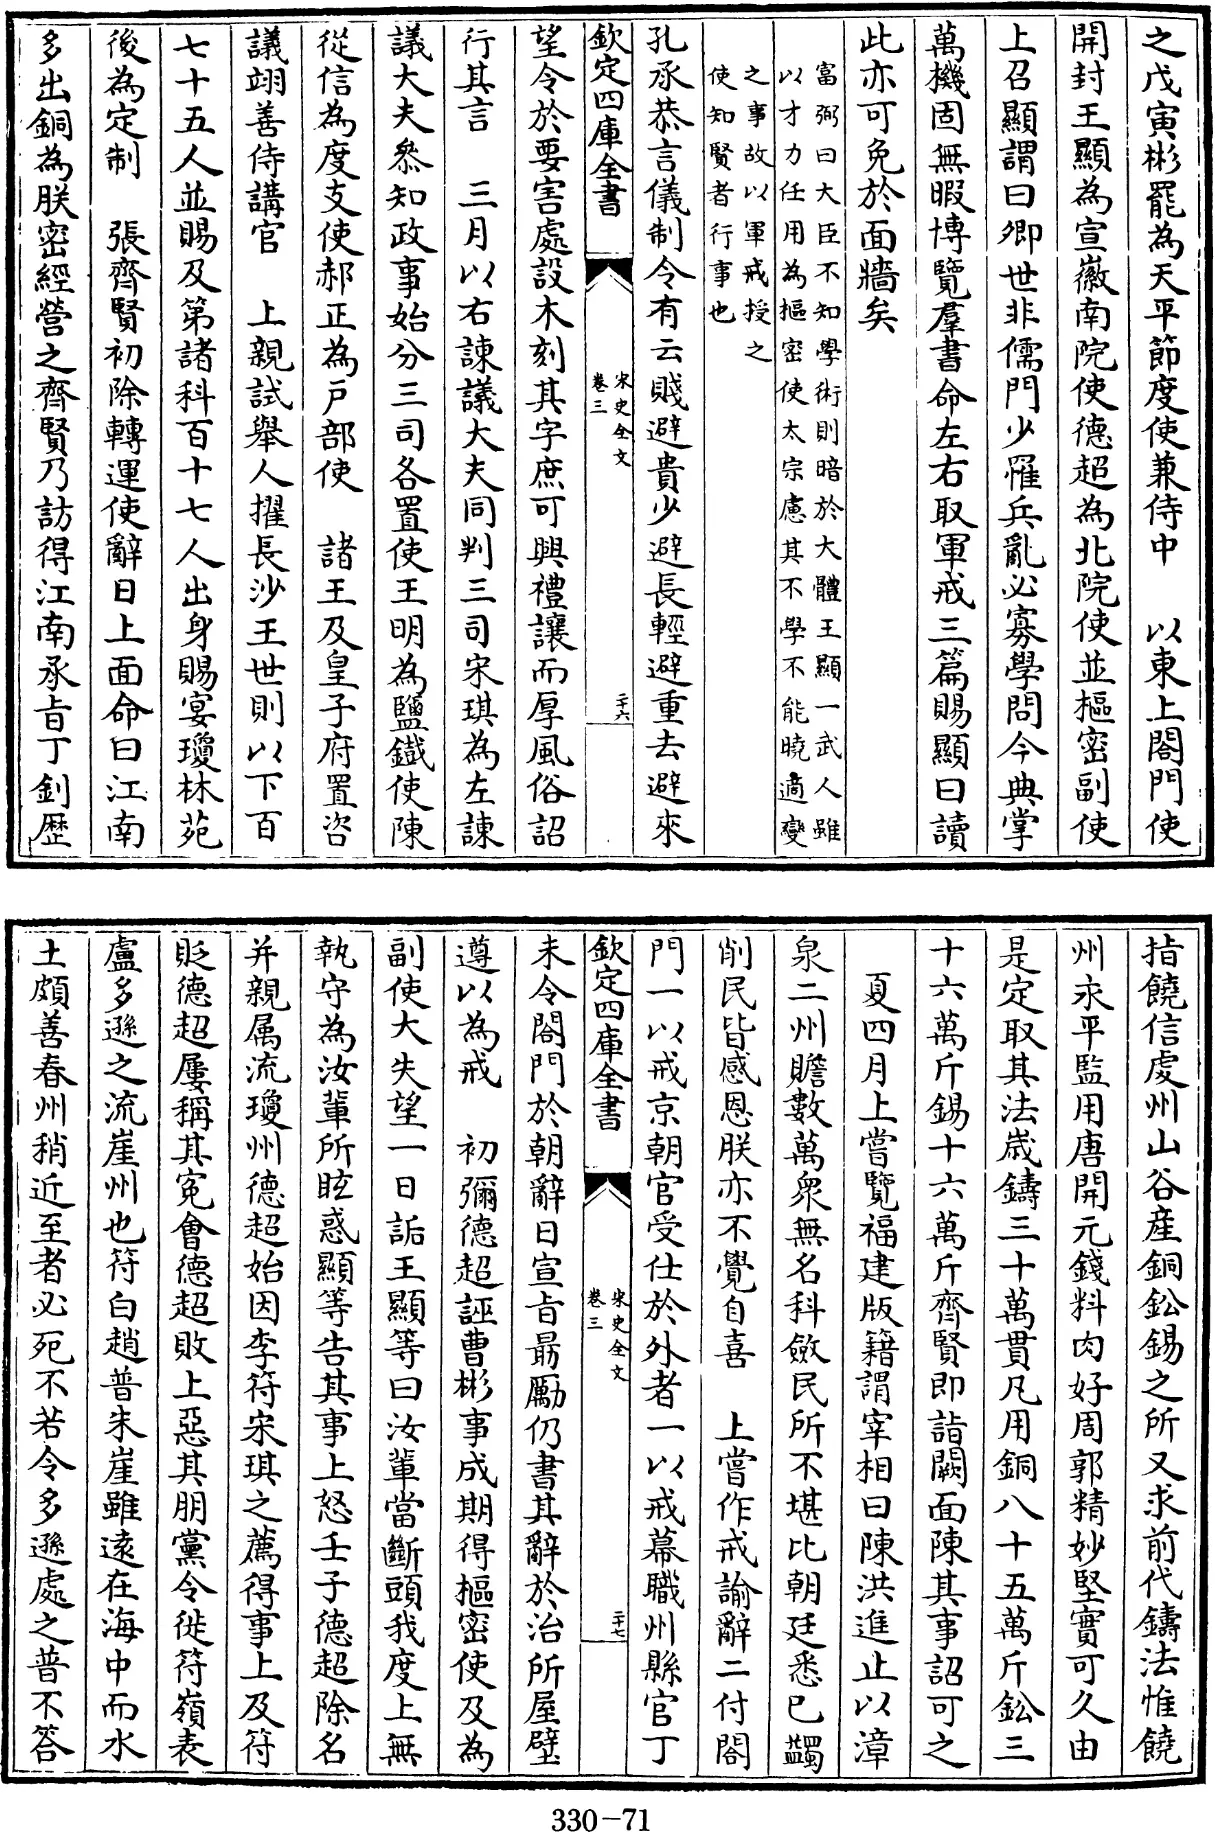 之戊寅彬罷為天平節度使兼侍中　以東上閤門使
開封王顯為宣徽南院使德超為北院使並樞密副使
上召顯謂曰卿世非儒門少罹兵亂必寡學問今典掌
萬機固無暇博覽羣書命左右取軍戒三篇賜顯曰讀
此亦可免於面牆矣
富弼曰大臣不知學術則暗於大體王顯一武人雖
以才力任用為樞密使太宗慮其不學不能曉適變
之事故以軍戒授之
使知賢者行事也
孔承恭言儀制令有云賤避貴少避長輕避重去避來
欽定四庫全書
宋史全文
卷三
二十六
望令於要害處設木刻其字庶可興禮讓而厚風俗詔
行其言　三月以右諫議大夫同判三司宋琪為左諫
議大夫叅知政事始分三司各置使王明為鹽鐵使陳
從信為度支使郝正為戸部使　諸王及皇子府置咨
議翊善侍講官　上親試舉人擢長沙王世則以下百
七十五人並賜及第諸科百十七人出身賜宴瓊林苑
後為定制　張齊賢初除轉運使辭日上面命曰江南
多出銅為朕密經營之齊賢乃訪得江南承旨丁釗歷
指饒信虔州山谷産銅鉛錫之所又求前代鑄法惟饒
州永平監用唐開元錢料肉好周郭精妙堅實可久由
是定取其法歲鑄三十萬貫凡用銅八十五萬斤鉛三
十六萬斤錫十六萬斤齊賢即詣闕面陳其事詔可之
夏四月上嘗覽福建版籍謂宰相曰陳洪進止以漳
泉二州贍數萬衆無名科斂民所不堪比朝廷悉已蠲
削民皆感恩朕亦不覺自喜　上嘗作戒諭辭二付閤
門一以戒京朝官受仕於外者一以戒幕職州縣官丁
欽定四庫全書
宋史全文
卷三
二十七
未令閤門於朝辭日宣旨勗勵仍書其辭於治所屋壁
遵以為戒　初彌德超誣曹彬事成期得樞密使及為
副使大失望一日詬王顯等曰汝輩當斷頭我度上無
執守為汝輩所眩惑顯等告其事上怒壬子德超除名
并親属流瓊州德超始因李符宋琪之薦得事上及符
貶德超屢稱其寃會德超敗上惡其朋黨令徙符嶺表
盧多遜之流崖州也符白趙普朱崖雖逺在海中而水
土頗善春州稍近至者必死不若令多遜處之普不答
330-71